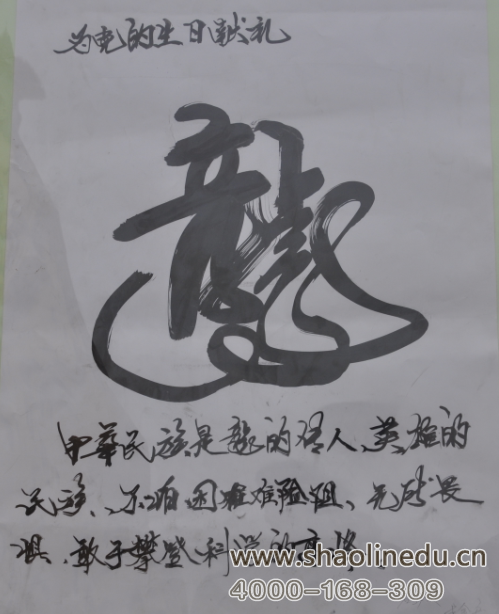 为党的生日献礼
龍
中华民族是龍的传人、英雄的
民族、不怕困难险阻、无所畏
惧、敢于攀登科学的高峰
www.shaolinedu.cn
4000-168-309